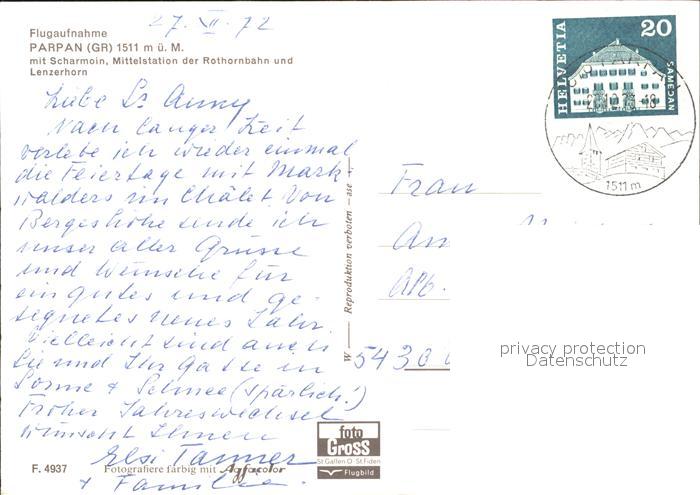 27. XII. 72
Flugaufnahme
PARPAN (GR) 1511 m ü. M.
mit Scharmoin, Mittelstation der Rothornbahn und
Lenzerhorn
Liebe Anny
Nach langer Zeit
verlebe ich wieder einmal
die Feiertage mit Mark
walders im Châlet. Von
Bergeshöhe sende ich
unser aller Grüsse
und Wünsche für
ein gutes und ge-
segnetes neues Jahr.
Vielleicht sind auch
Sie und Ihr Gatte in
Sonne & Schnee (spärlich!)
Froher Jahreswechsel
wünscht Ihnen
Elsi Tanner
& Familie.
F. 4937
Fotografiere farbig mit Agfacolor
foto
GROSS
St Gallen O · St Fiden
Flugbild
W — Reproduktion verboten —
HELVETIA
20
SAMEDAN
1511 m
Frau
An
5430
privacy protection
Datenschutz